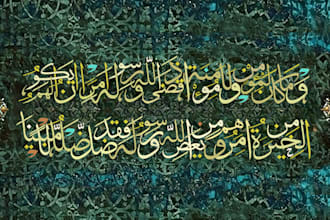 وما كان لمؤمن ولا مؤمنة إذا قضى الله ورسوله أمرا أن يكون لهم
الخيرة من أمرهم ومن يعص الله ورسوله فقد ضل ضلالا مبينا